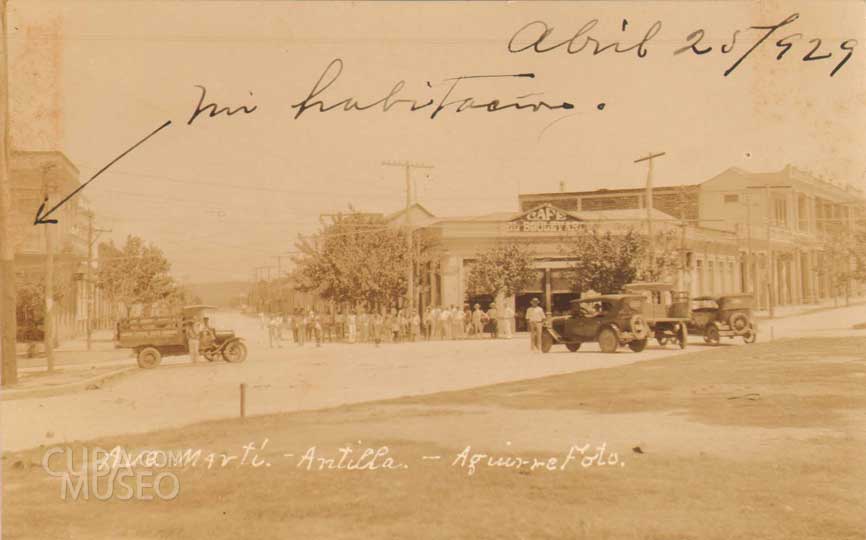 Abril 25/929
Mi habitación.
CAFE
BOULEVARD
Ave Martí. - Antilla. - Aguirre Foto.
CUBA.COM
MUSEO